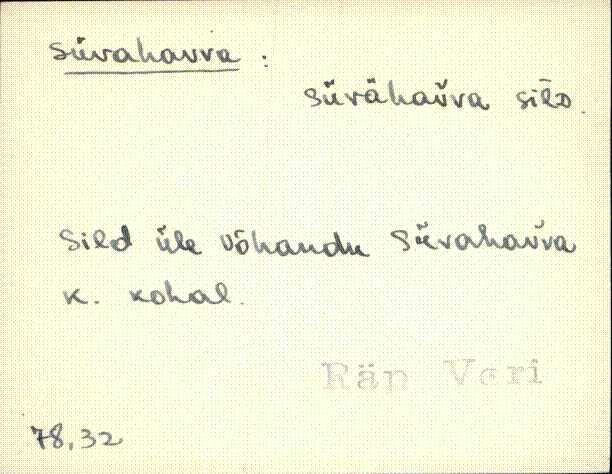 Süvahavva :
süvähav̆va sild.
Sild üle Võhandu Süvahav̆va
k. kohal.
Räp Veri
78.32